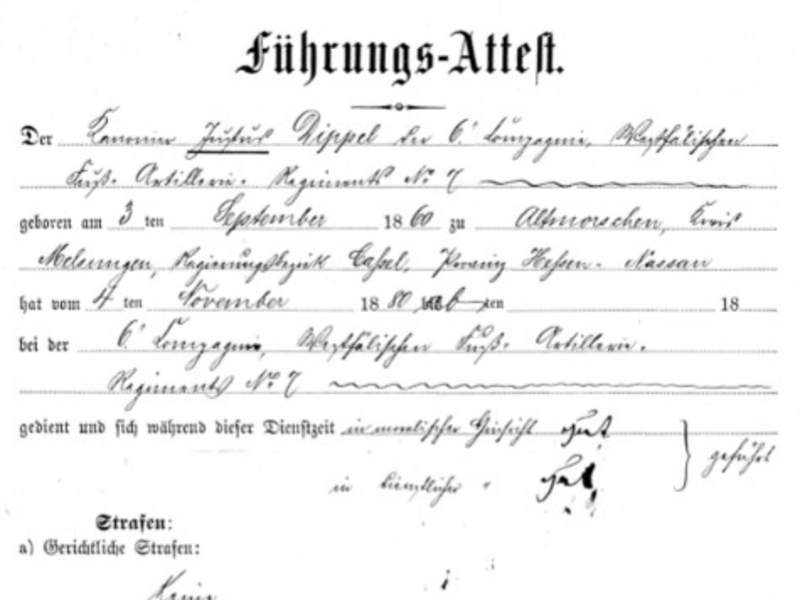 Führungs-Attest.
Der Kanonier Justus Dippel der 6. Compagnie, Westfälischen
Fuß-Artillerie-Regiments No 7
geboren am 3 ten September 1860 zu Altmorschen, Kreis
Melsungen, Regierungsbezirk Cassel, Provinz Hessen-Nassau
hat vom 4 ten November 1880 ten 18
bei der 6. Compagnie, Westfälischen Fuß-Artillerie-
Regiments No 7
gedient und sich während dieser Dienstzeit in moralischer Hinsicht gut
in dienstlicher " gut
geführt
Strafen:
a) Gerichtliche Strafen:
Keine